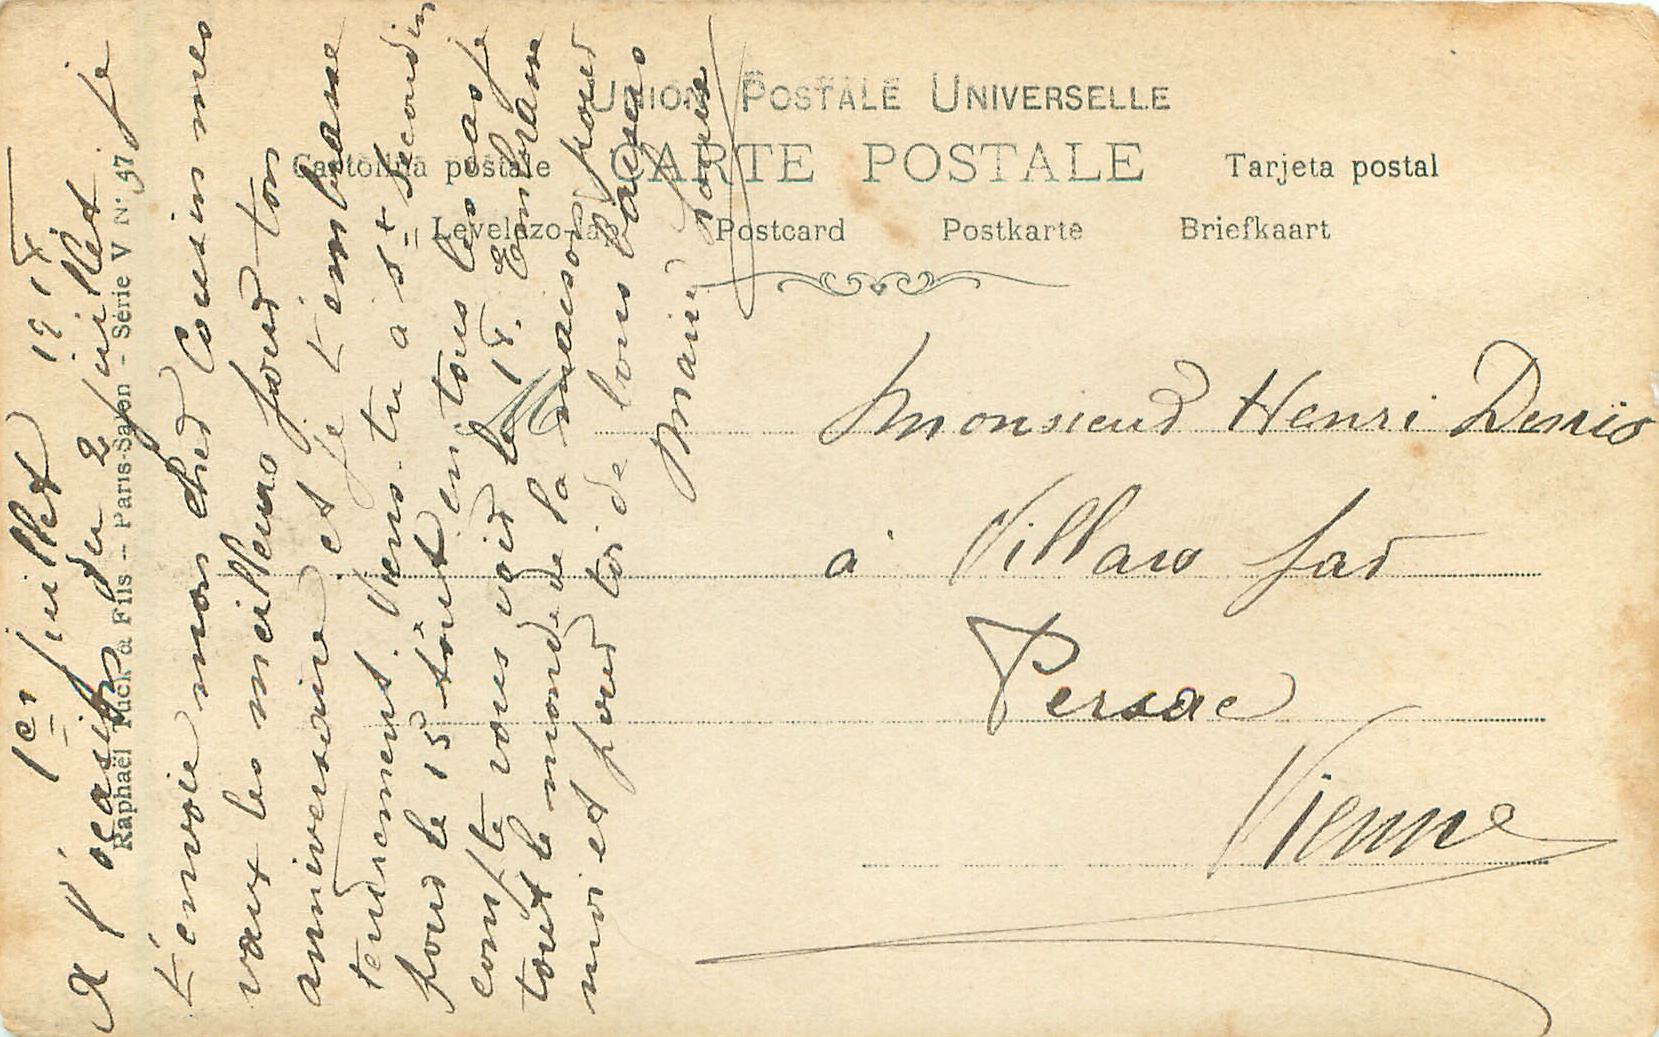 UNION POSTALE UNIVERSELLE
CARTE POSTALE
Cartolina postale
Tarjeta postal
Levelezo-lap
Postcard
Postkarte
Briefkaart
M
Monsieur Henri Denis
à Villars par
Persac
Vienne
Raphaël Tuck & Fils – Paris-Salon – Série V N° 37
1er juillet 19
A l'ocasion du 2 juillet je
t'envoie mon cher Cousin mes
vœux les meilleurs pour ton
anniversaire et je t'embrasse
tendrement. Viens-tu à St Secondin
pour le 15 Août en tous les cas je
compte vous voir le 14. Embrasse
tout le monde de la maison pour
moi et pour toi de bons baisers
Marie